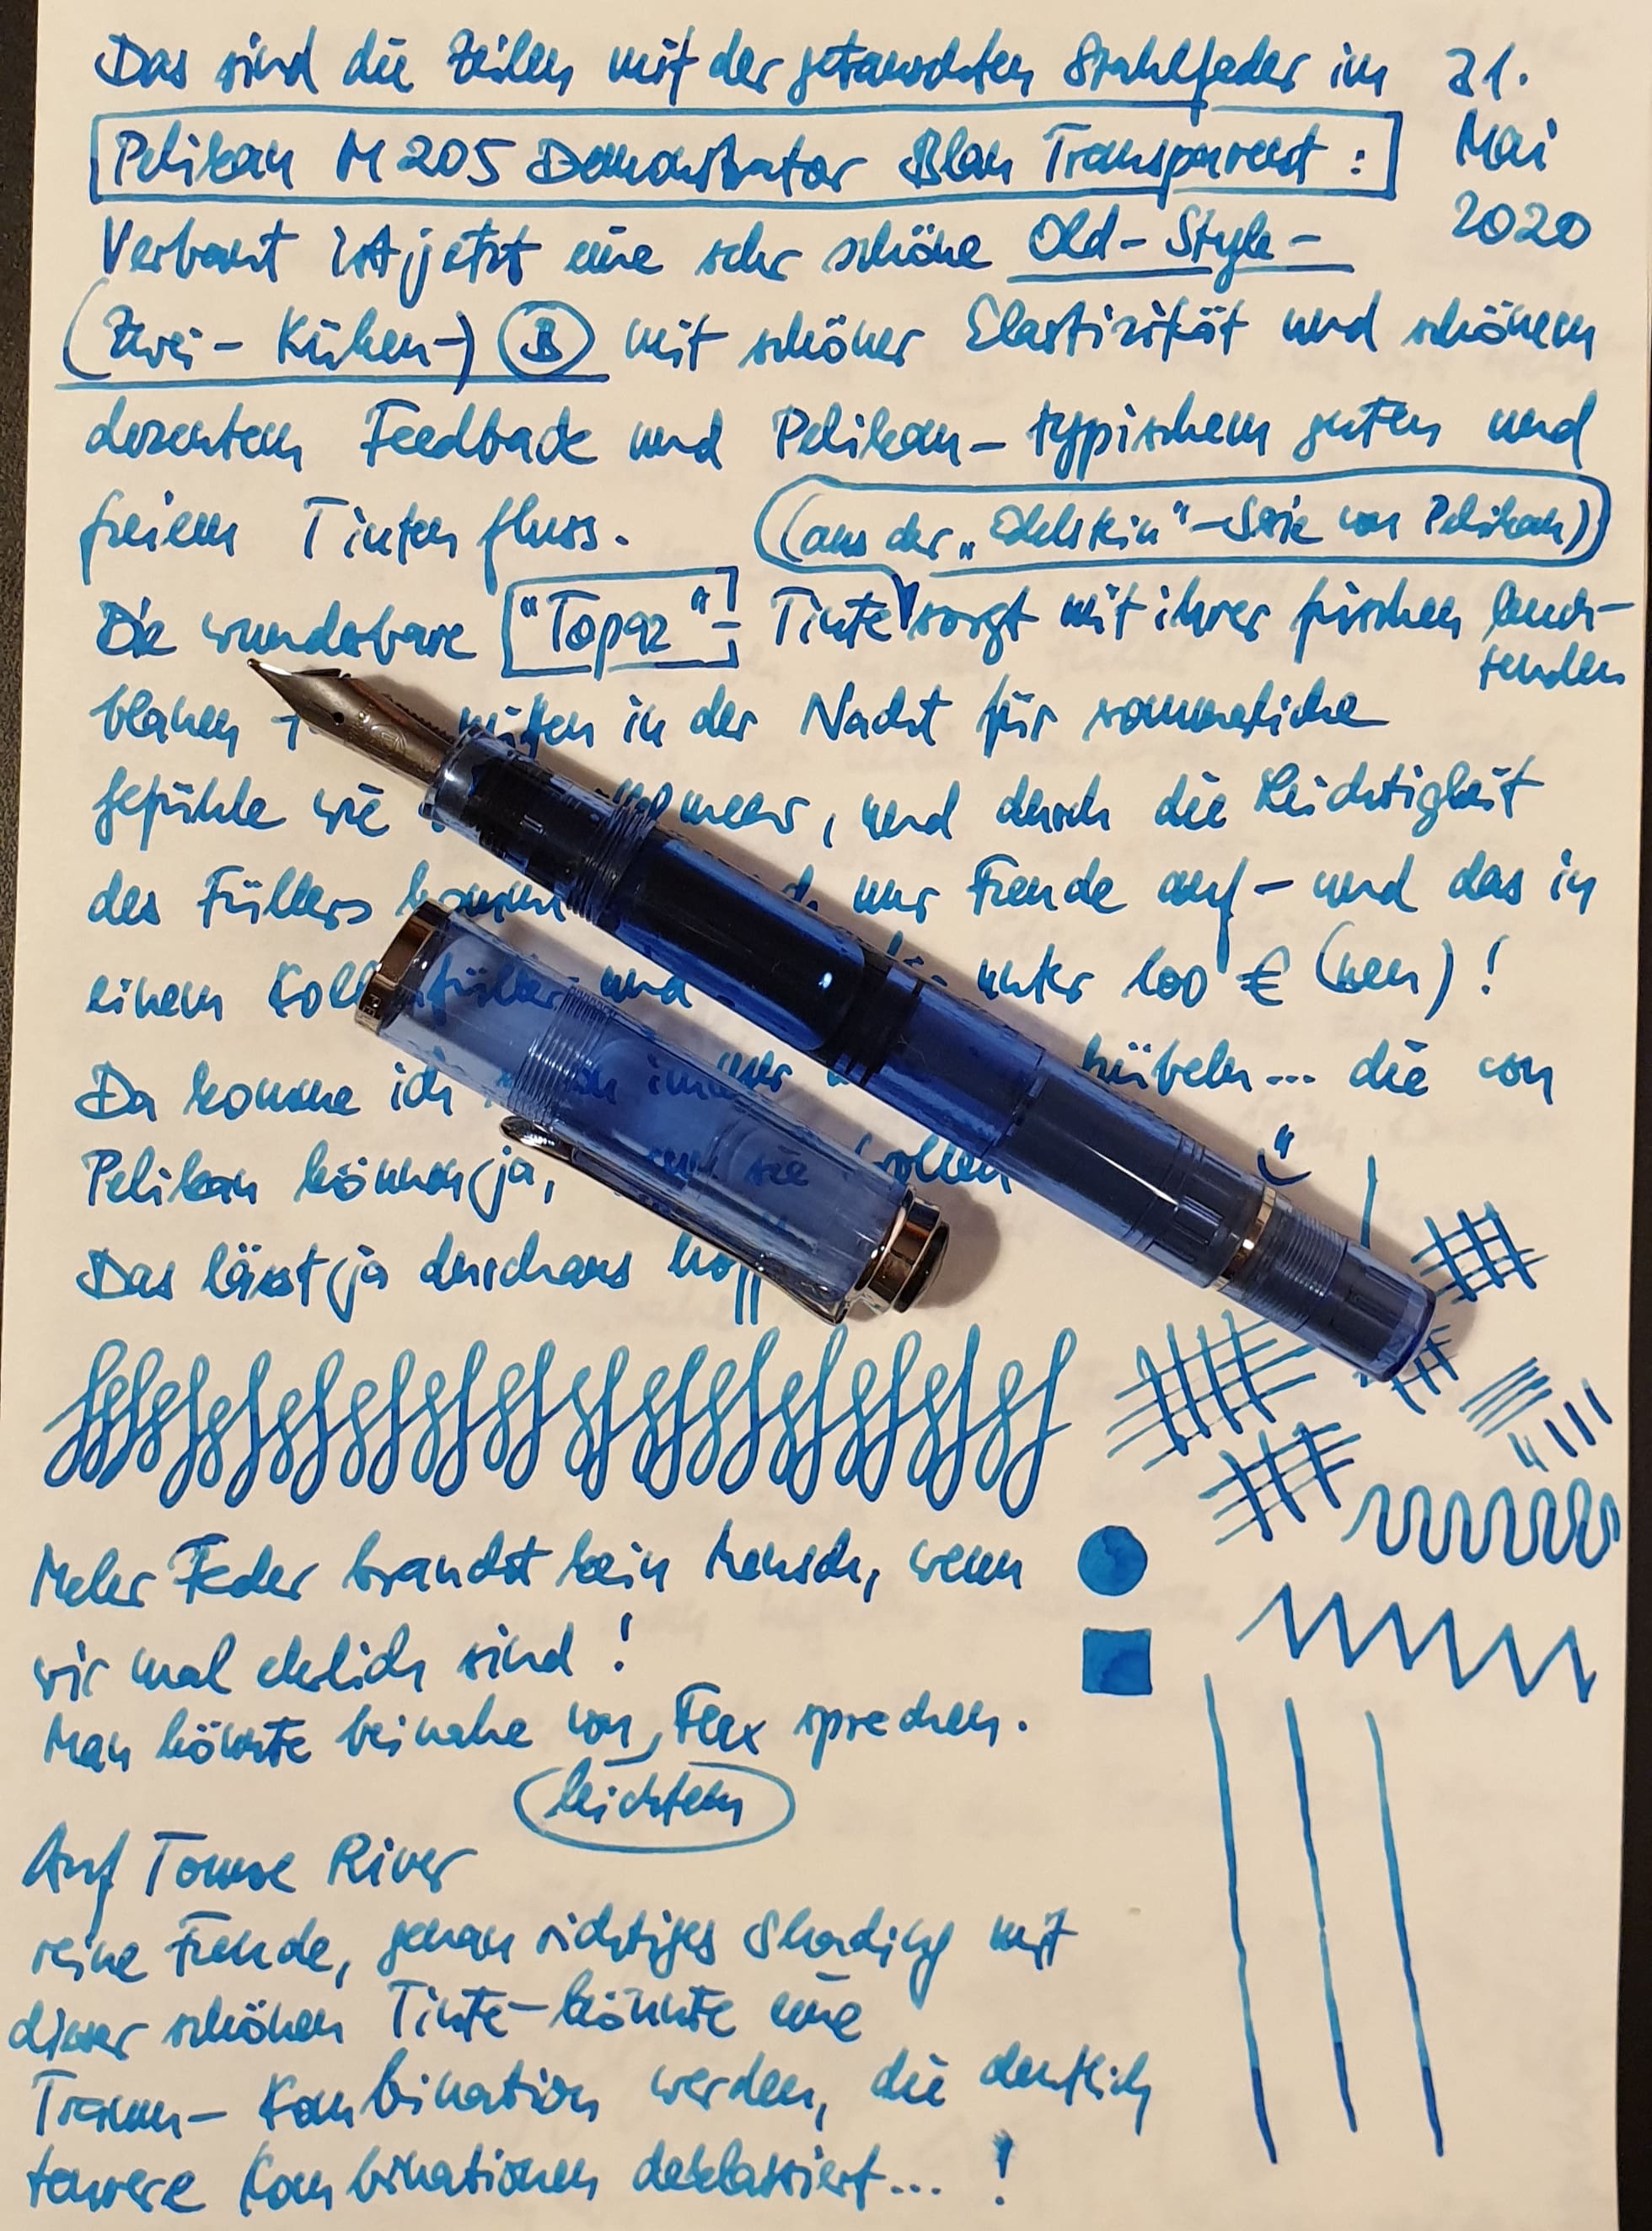 Das sind die Zeilen mit der getauschten Stahlfeder im
21.
Mai
2020
Pelikan M205 Demonstrator Blau Transparent:
Verbaut ist jetzt eine sehr schöne Old-Style-
(Zwei-Küken-) B mit schöner Elastizität und schönem
dezentem Feedback und Pelikan-typischem guten und
freiem Tintenfluss.
(aus der „Edelstein"-Serie von Pelikan)
Die wunderbare "Topaz"- Tinte sorgt mit ihrer frischen leuch-
tenden
blauen mitten in der Nacht für sommerliche
Gefühle wie und durch die Leichtigkeit
des Füllers nur Freude auf - und das in
einem und unter 100 € (neu)!
Da komme ich immer die von
Pelikan können ja, sie wollen
Das lässt ja durchaus
Mehr Feder braucht kein Mensch, wenn
wir mal ehrlich sind!
Man könnte beinahe von Flex sprechen.
leichtem
Auf Tomoe River
reine Freude, genau richtiges Shading mit
dieser schönen Tinte - könnte eine
Traum-Kombination werden, die deutlich
teurere Kombinationen deklassiert... !